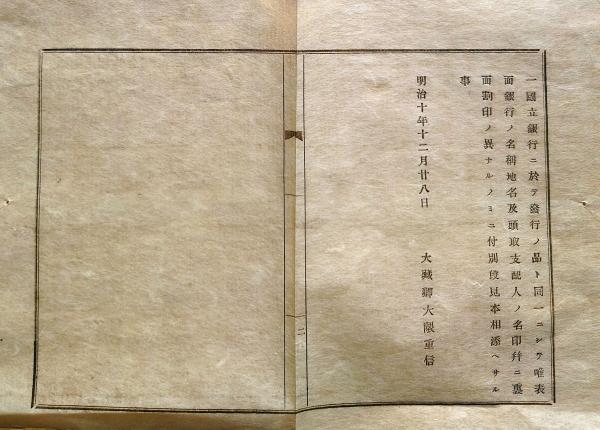 一國立銀行ニ於テ發行ノ品ト同一ニシテ唯表
面銀行ノ名稱地名及頭取支配人ノ名印幷ニ裏
面割印ノ異ナルノミニ付別段見本相添ヘサル
事
明治十年十二月廿八日
大藏卿大隈重信
二